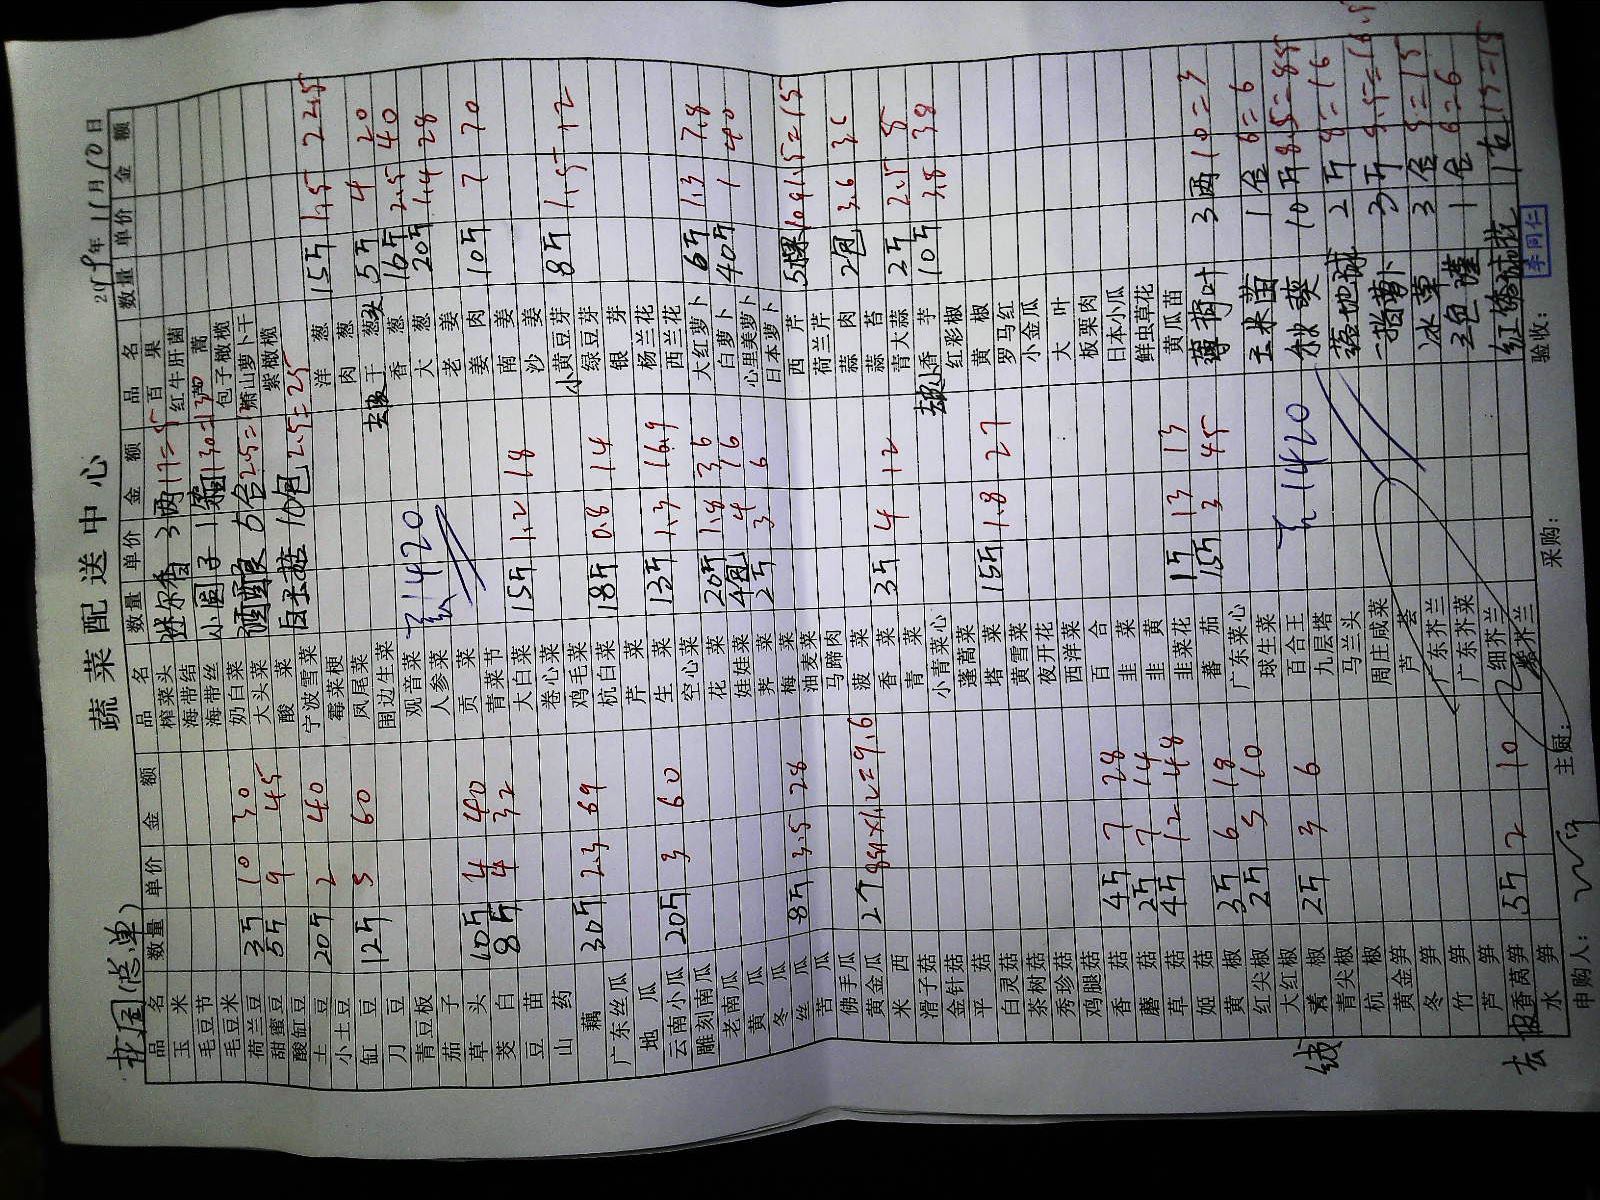 蔬菜配送中心
2019年11月10日
品名 数量 单价 金额 品名 数量 单价 金额 品名 数量 单价 金额
玉米
毛豆节
毛豆米
荷兰豆 3斤 10 30
甜蜜豆 5斤 9 45
酸缸豆
土豆 20斤 2 40
小土豆
缸豆 12斤 5 60
刀豆
青豆板
茄子
草头 10斤 4 40
茭白 8斤 4 32
豆苗
山药
藕 30斤 2.3 69
广东丝瓜
地瓜
云南小瓜 20斤 3 60
雕刻南瓜
老南瓜
黄瓜
冬瓜
丝瓜 8斤 3.5 28
苦瓜
佛手瓜
黄金瓜 2个 8斤×1.2=9.6
米西
滑子菇
金针菇
平菇
白灵菇
茶树菇
秀珍菇
鸡腿菇
香菇 4斤 7 28
蘑菇 2斤 7 14
草菇 4斤 12 48
姬菇
黄椒 3斤 6 18
红尖椒 2斤 5 10
大红椒
椒 2斤 3 6
青尖椒
杭椒
黄金笋
冬笋
竹笋
芦笋
去皮香莴笋 5斤 2 10
水笋
榨菜头
海带结
海带丝
奶白菜
大头菜
酸菜
宁波雪菜
霉菜梗
凤尾菜
围边生菜
观音菜
人参菜
贡菜
青菜节
大白菜 15斤 1.2 18
卷心菜
鸡毛菜
杭白菜 18斤 0.8 14
芹菜
生菜 13斤 1.3 16.9
空心菜
花菜 20斤 1.8 36
娃娃菜 4包 4 16
荠菜 2斤 3 6
梅菜
油麦菜
马蹄肉
菠菜
香菜 3斤 4 12
青菜
小青菜心
蓬蒿菜
塔菜 15斤 1.8 27
黄雪菜
夜开花
西洋菜
百合
韭菜
韭黄
韭菜花 1斤 13 13
蕃茄 15斤 3 45
广东菜心
球生菜
百合王
九层塔
马兰头
周庄咸菜
芦荟
广东芥兰
广东芥菜
细芥兰
紫芥兰
小圆子
酒酿
白玉菇 10包 2.5=25
1420
1420
百果
红牛肝菌
蒿
包子橄榄
萧山萝卜干
紫橄榄
洋葱 15斤 1.5 22.5
肉葱
去皮干葱头 5斤 4 20
香葱 16斤 2.5 40
大葱 20斤 1.4 28
老姜
姜肉 10斤 7 70
南姜
沙姜
小黄豆芽 8斤 1.5 12
绿豆芽
银芽
杨兰花
西兰花
大红萝卜 6斤 1.3 7.8
白萝卜 40斤 1 40
心里美萝卜
日本萝卜
西芹 5棵
荷兰芹
蒜肉 2包
蒜苔
青大蒜 2斤 2.5 5
去皮小香芋 10斤 3.8 38
红彩椒
黄椒
罗马红
小金瓜
大叶
板栗肉
日本小瓜
鲜虫草花
黄瓜苗
薄荷叶 3两 10=3
玉米苗 1盒 6=6
10斤 8.5=85
落地球 2斤 8=16
3斤
冰草 3盒 5=15
三色堇 1盒 6=6
15=15
申购人：
主厨：
采购：
验收：
李同仁